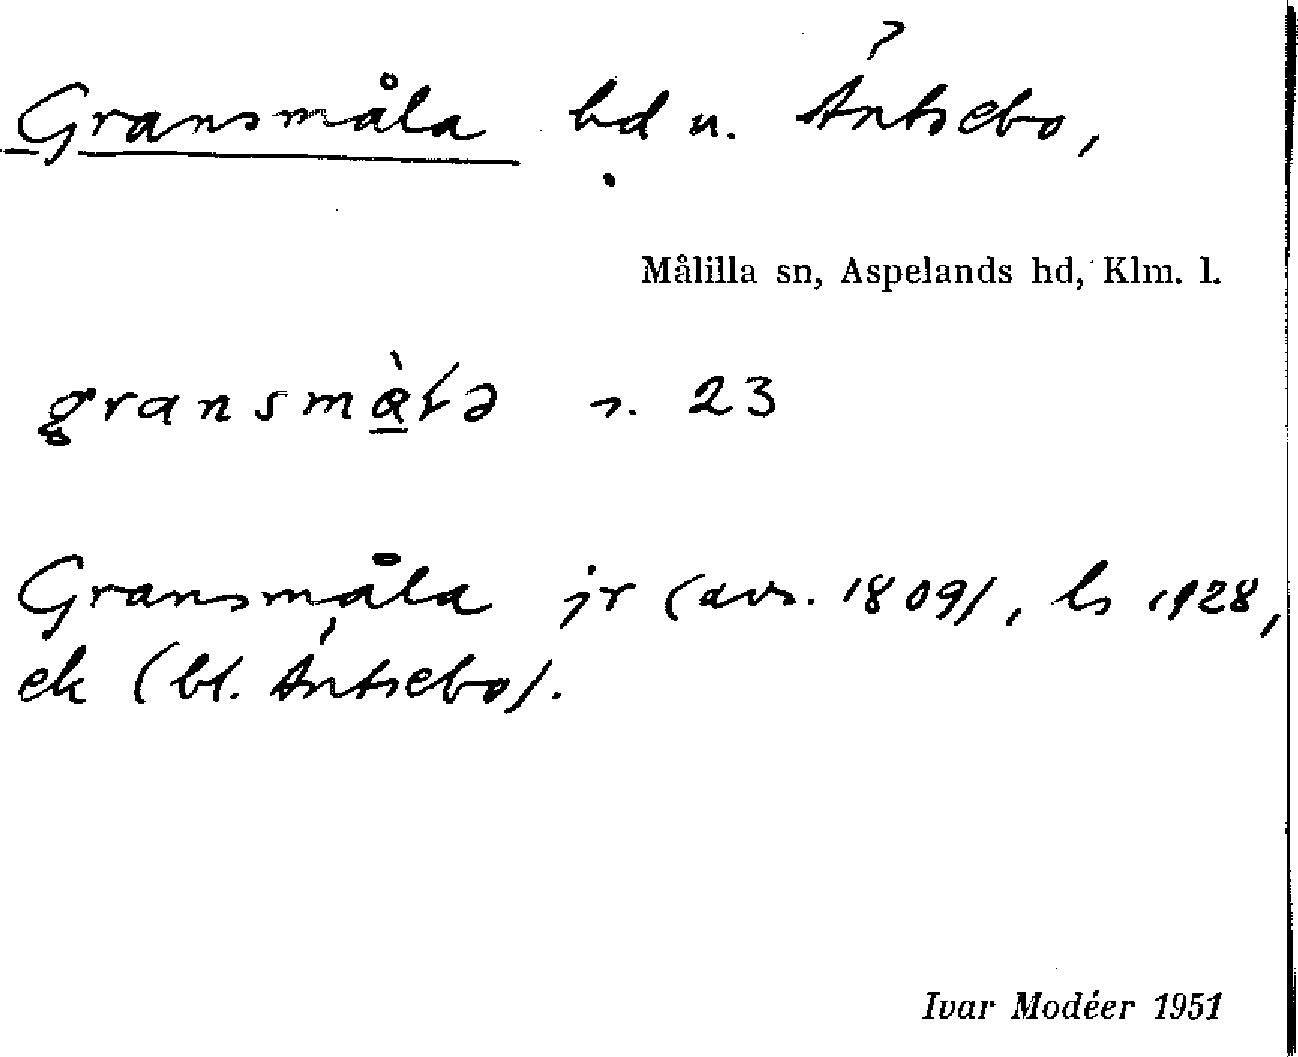 Gransmåla bd u. Äntsebo,
Målilla sn, Aspelands hd, Klm. l.
gransmą̀ɫə s. 23
Gransmåla jr (avs. 1809), ls 1928,
ek (bl. Äntsebo).
Ivar Modéer 1951